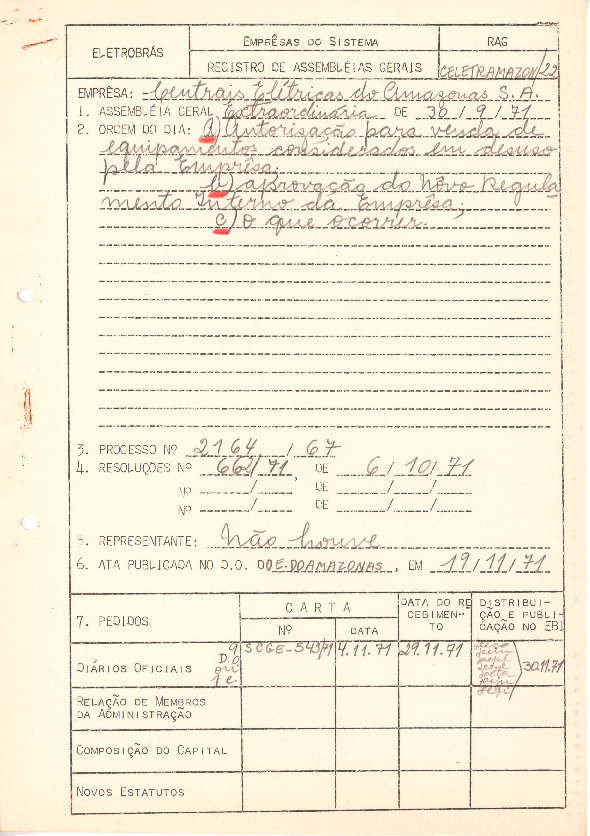 ELETROBRÁS
EMPRÊSAS DO SISTEMA
RAG
REGISTRO DE ASSEMBLÉIAS GERAIS
CELETRAMAZON/22
EMPRÊSA: - Centrais Elétricas do Amazonas S.A.
1. ASSEMBLÉIA GERAL Extraordinária DE 30/9/71
2. ORDEM DO DIA: a) Autorização para venda de
equipamentos considerados em desuso
pela Emprêsa;
b) aprovação do Nôvo Regula-
mento Interno da Emprêsa;
c) O que ocorrer.
3. PROCESSO Nº 2164 / 67
4. RESOLUÇÕES Nº 662/71, DE 6/10/71
Nº ____/____ DE ____/____/____
Nº ____/____ DE ____/____/____
5. REPRESENTANTE: Não houve
6. ATA PUBLICADA NO D.O. DO E.DO AMAZONAS, EM 19/11/71
7. PEDIDOS
CARTA
Nº
DATA
DATA DO RE
CEBIMEN-
TO
DISTRIBUI-
ÇÃO E PUBLI-
CAÇÃO NO EBI
DIÁRIOS OFICIAIS
9 D.O
ori
1 c.
SCGE-543/71
4.11.71
29.11.71
30.11.71
RELAÇÃO DE MEMBROS
DA ADMINISTRAÇÃO
COMPOSIÇÃO DO CAPITAL
NOVOS ESTATUTOS